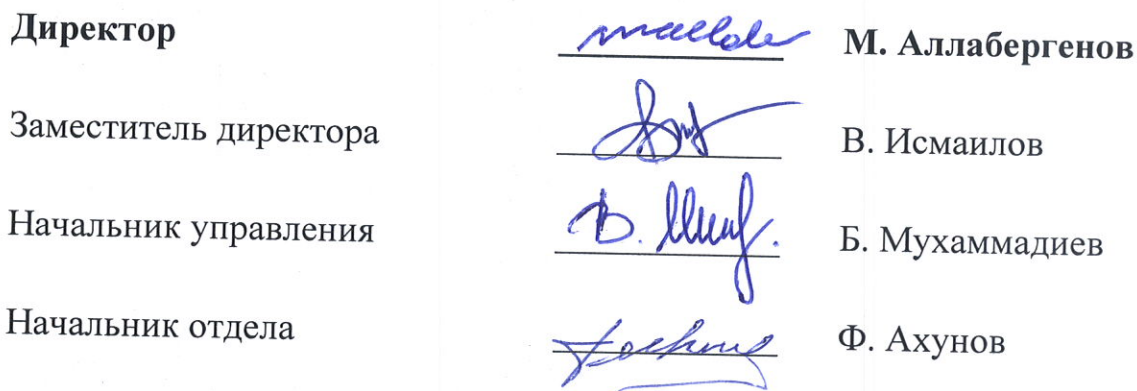 Директор М. Аллабергенов
Заместитель директора В. Исмаилов
Начальник управления Б. Мухаммадиев
Начальник отдела Ф. Ахунов